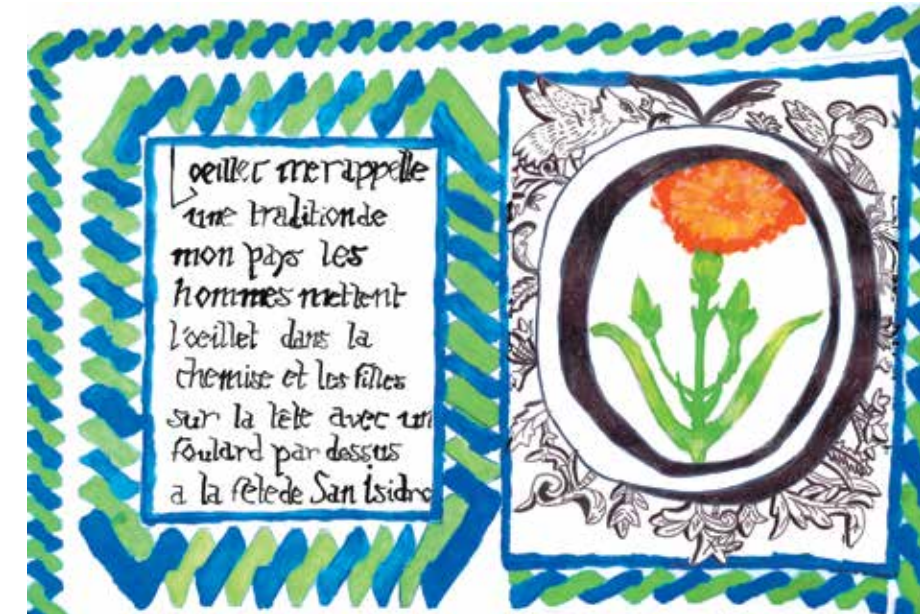 L'oeillet me rappelle
une tradition de
mon pays les
hommes mettent
l'oeillet dans la
chemise et les filles
sur la tête avec un
foulard par dessus
a la fête de San Isidro
O